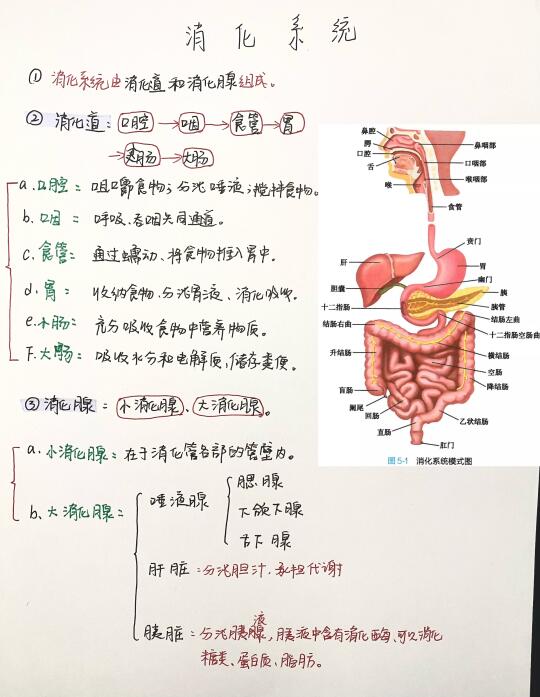 消 化 系 统
① 消化系统由消化道和消化腺组成。
② 消化道：口腔→咽→食管→胃
→小肠→大肠
a.口腔：咀嚼食物；分泌唾液；搅拌食物。
b.咽：呼吸、吞咽共同通道。
c.食管：通过蠕动、将食物推入胃中。
d.胃：收纳食物、分泌胃液、消化吸收。
e.小肠：充分吸收食物中营养物质。
f.大肠：吸收水分和电解质，储存粪便。
③ 消化腺：小消化腺、大消化腺。
a.小消化腺：在于消化管各部的管壁内。
b.大消化腺：
唾液腺
腮腺
下颌下腺
舌下腺
肝脏：分泌胆汁、承担代谢
胰脏：分泌胰液，胰液中含有消化酶，可以消化
糖类、蛋白质、脂肪。
鼻腔
腭
口腔
舌
喉
鼻咽部
口咽部
喉咽部
食管
贲门
肝
胃
幽门
胆囊
胰
十二指肠
胰管
结肠右曲
结肠左曲
十二指肠空肠曲
升结肠
横结肠
空肠
盲肠
降结肠
阑尾
回肠
乙状结肠
直肠
肛门
图5-1 消化系统模式图